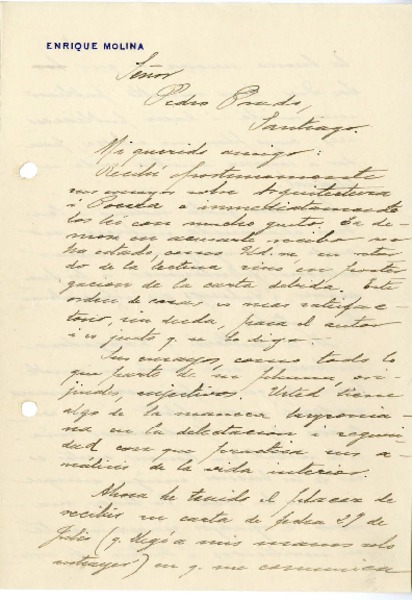 ENRIQUE MOLINA
Señor
Pedro Prado,
Santiago.
Mi querido amigo:
Recibí oportunamente
sus ensayos sobre Arquitectura
i Poesía e inmediatamente
los leí con mucho gusto. La de-
mora en acusarle recibo no
ha estado, como Ud. ve, en retar-
do de la lectura sino en postergación
de la carta debida. Este
orden de cosas es mas satisfac-
torio, sin duda, para el autor
i es justo q. se lo diga.
Sus ensayos, como todo lo
que parte de su pluma, ori-
jinales, sujestivos. Usted tiene
algo de la manera
en la delectacion i
dad con que practica sus a-
nálisis de la vida interior.
Ahora he tenido el placer de
recibir su carta de fecha 29 de
Julio (q. llegó a mis manos solo
anteayer) en q. me comunica